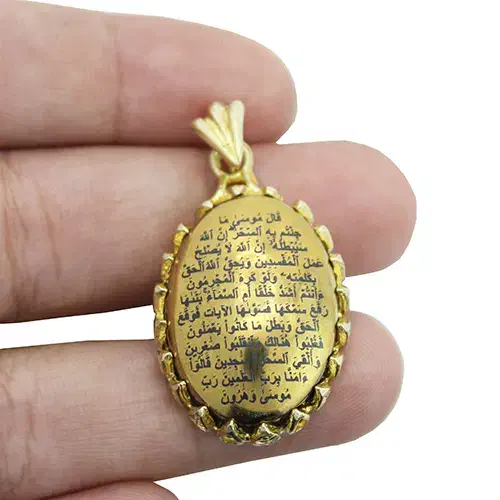 قال موسى ما
جئتم به السحر إن الله
سيبطله إن الله لا يصلح
عمل المفسدين ويحق الله الحق
بكلمته ولو كره المجرمون
ءأنتم أشد خلقا أم السماء بنها
رفع سمكها فسولها الآيات فوقع
الحق وبطل ما كانوا يعملون
فغلبوا هنالك وانقلبوا صغرين
وألقي السحرة سجدين قالوا
ءامنا برب العلمين رب
موسى وهرون